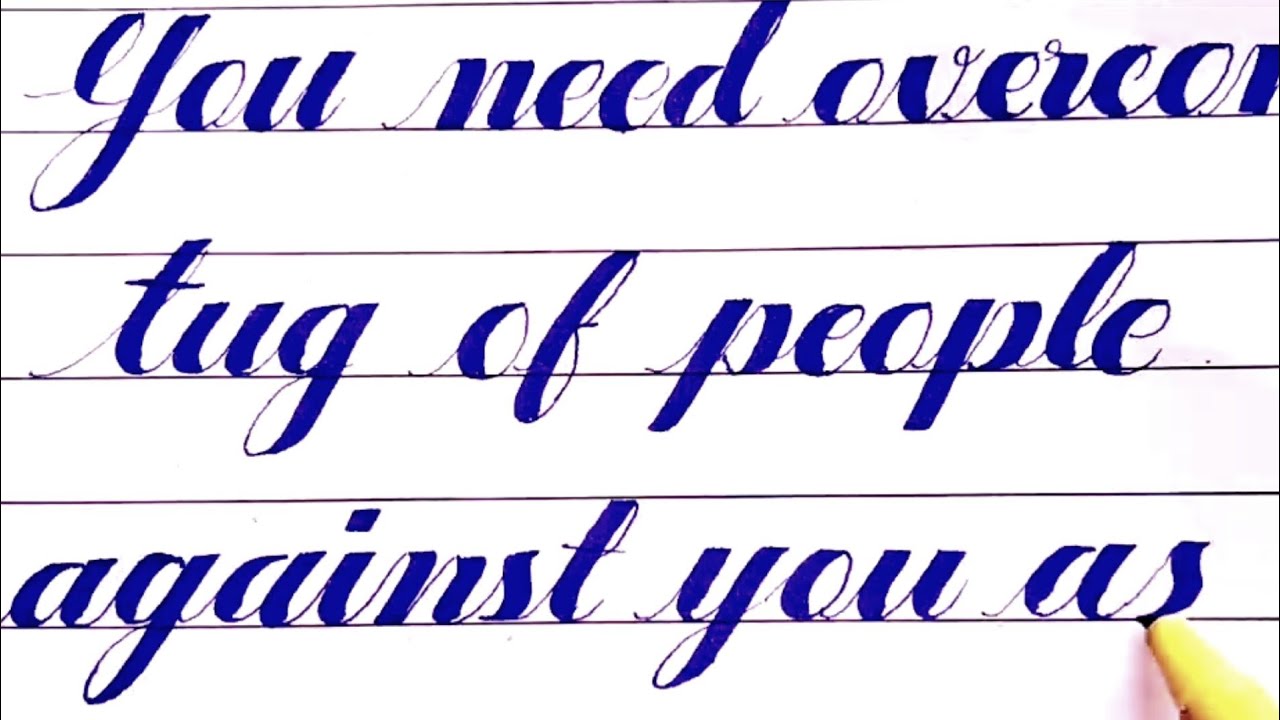 You need overcom
tug of people
against you as